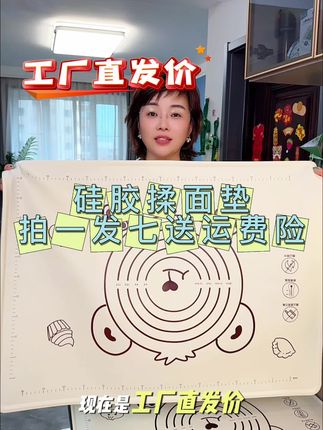 工厂直发价
硅胶揉面垫
拍一发七送运费险
现在是工厂直发价